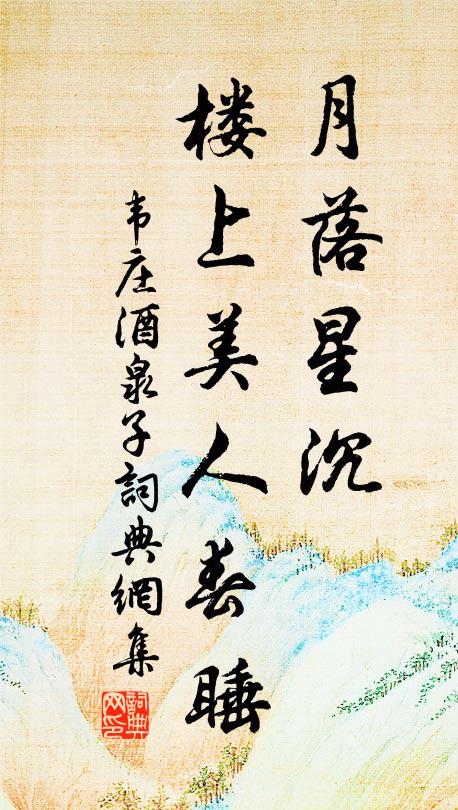 月落星沉
楼上美人春睡
韦庄酒泉子詞典網集
詞典
网印